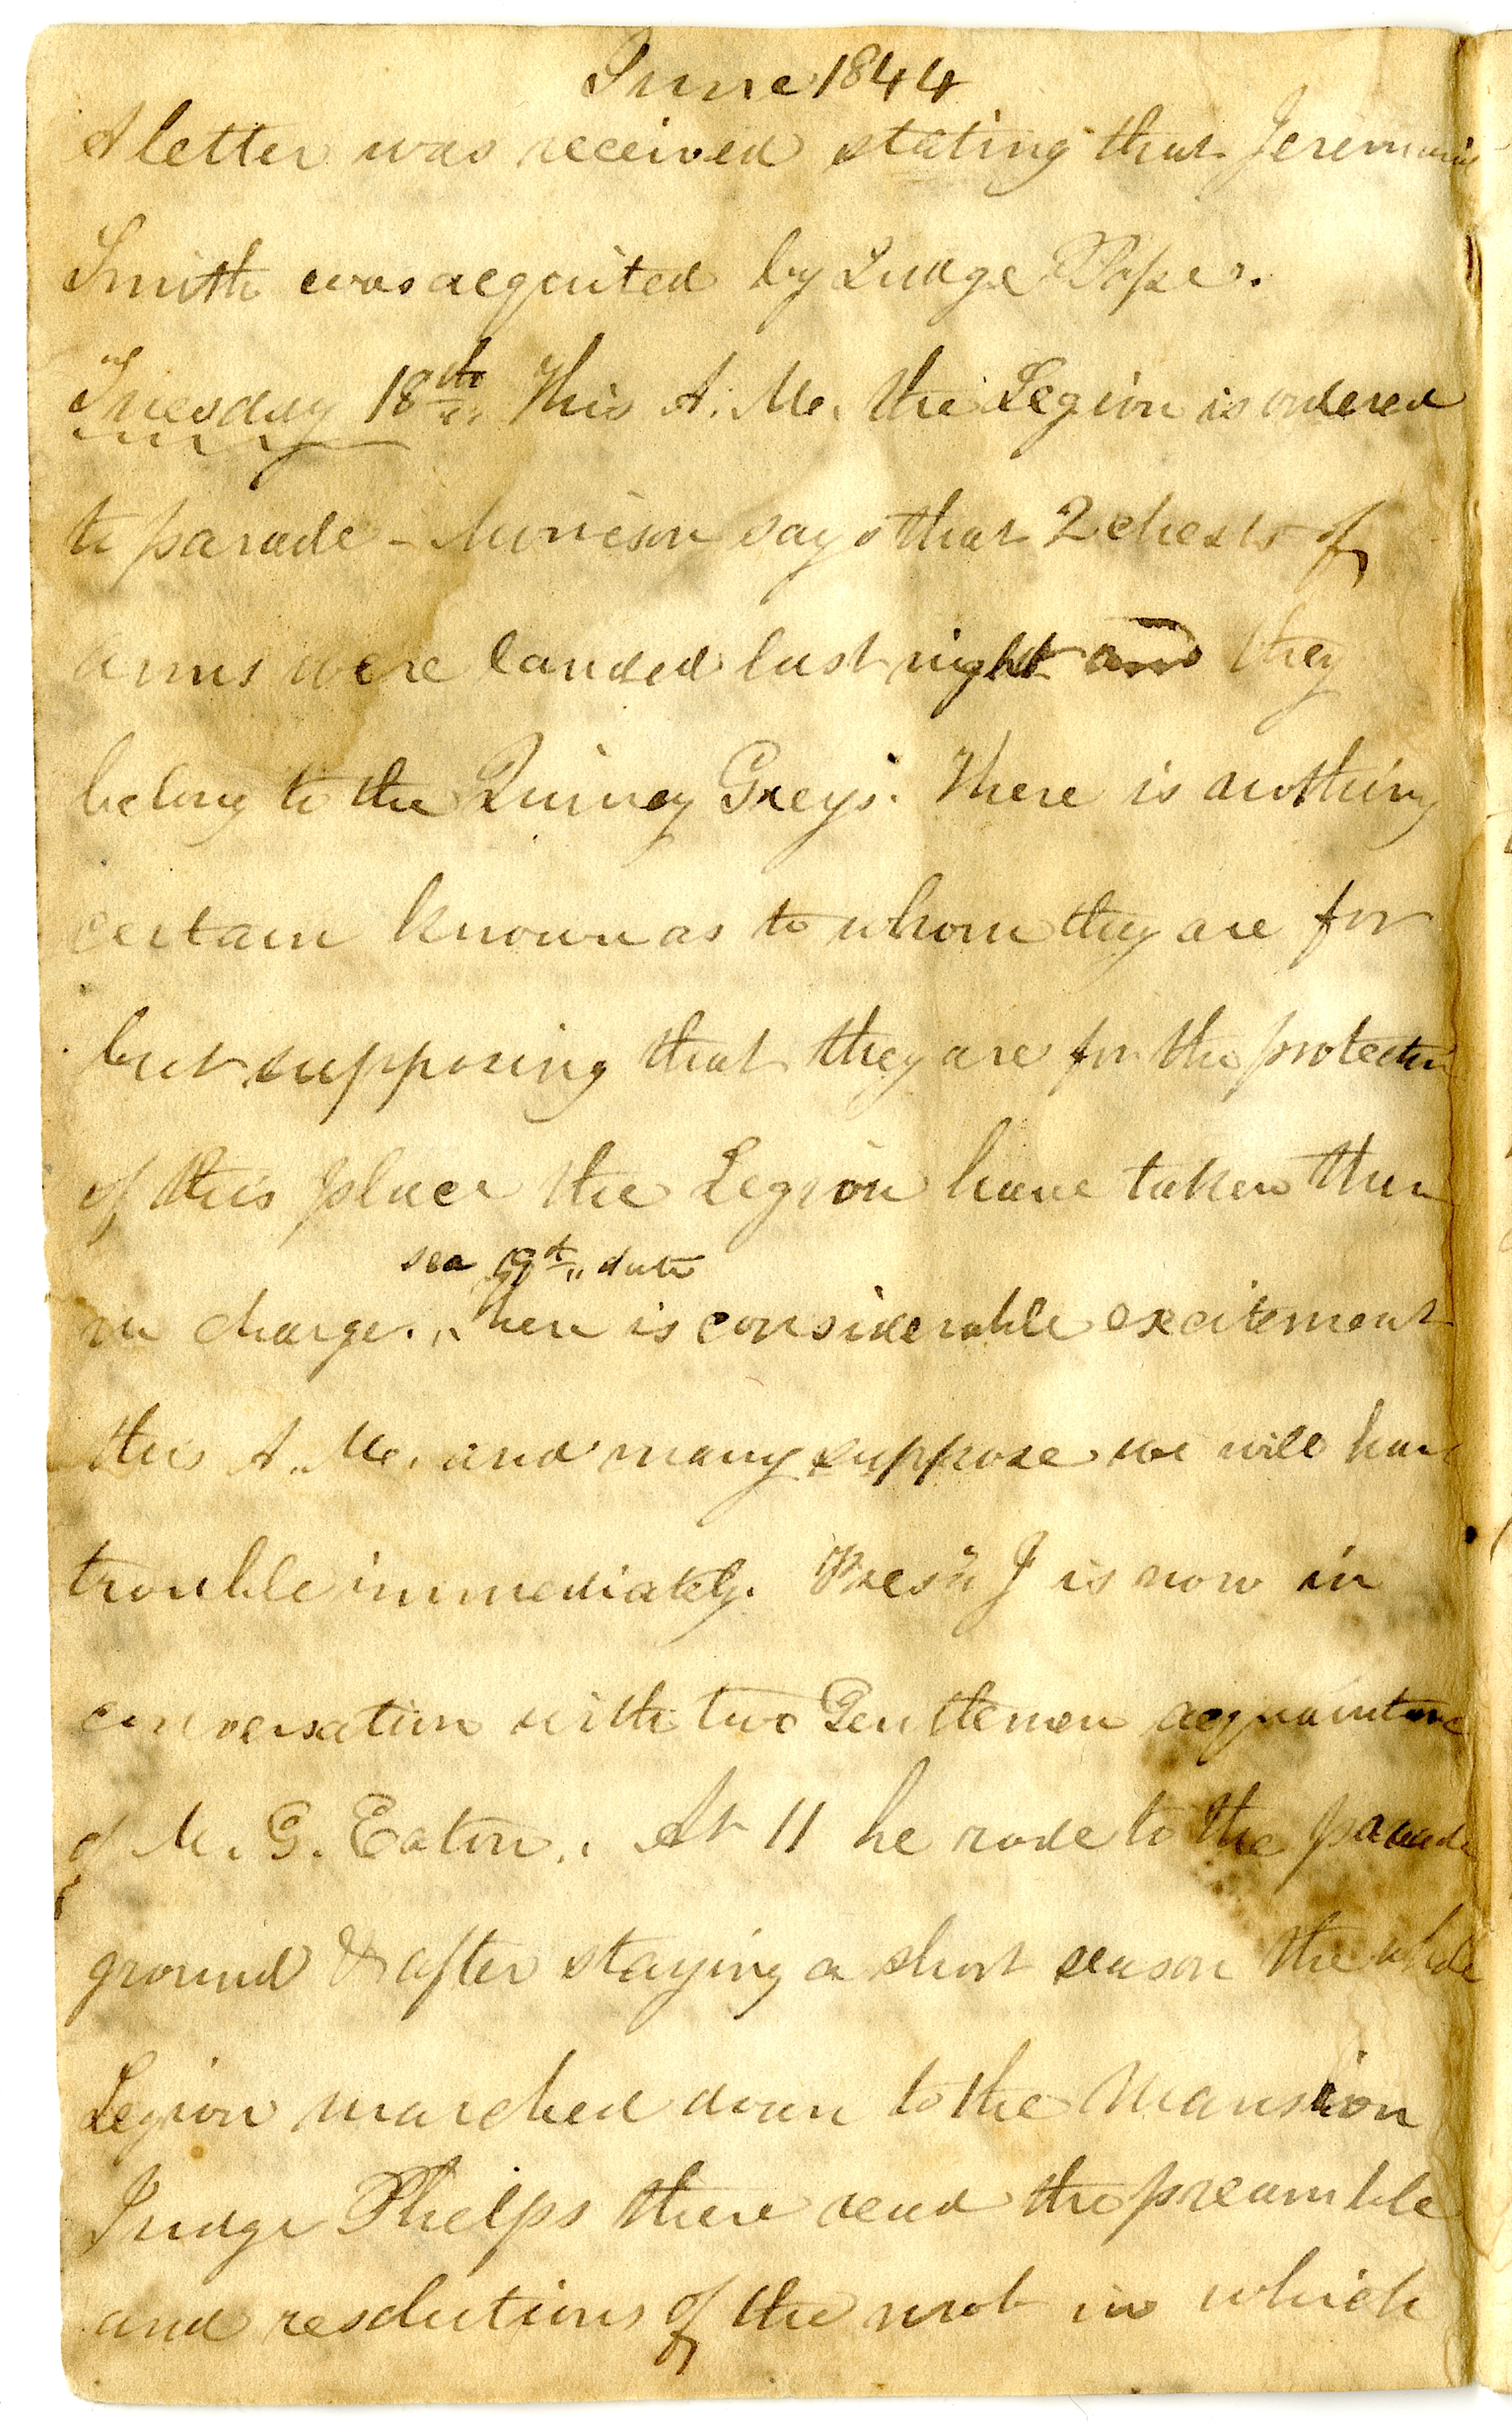 June 1844
A letter was received stating that Jeremiah
Smith was acquited by Judge Pope.
Tuesday 18th This A. M. the Legion is ordered
to parade - Morrison says that 2 chests of
arms were landed last night and they
belong to the Quincy Greys. There is nothing
certain known as to whom they are for
but supposing that they are for the protection
of this place the Legion have taken them
see 19th date
in charge. There is considerable excitement
this A. M. and many suppose we will have
trouble immediately. Prest J is now in
conversation with two Gentlemen acquaintance
of M. G. Eaton. At 11 he rode to the parade
ground & after staying a short season the whole
Legion marched down to the Mansion
Judge Phelps there read the preamble
and resolutions of the mob in which